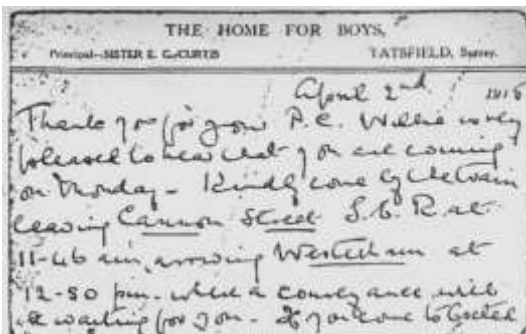 THE HOME FOR BOYS,
Principal—SISTER E. G. CURTIS TATSFIELD, Surrey.
April 2nd 1915
Thank you for your P.C. Willie is very
pleased to hear that you are coming
on Monday - Kindly come by the train
leaving Cannon Street S.E.R at
11-46 am, arriving Westerham at
12-50 pm. where a conveyance will
be waiting for you - If you come to